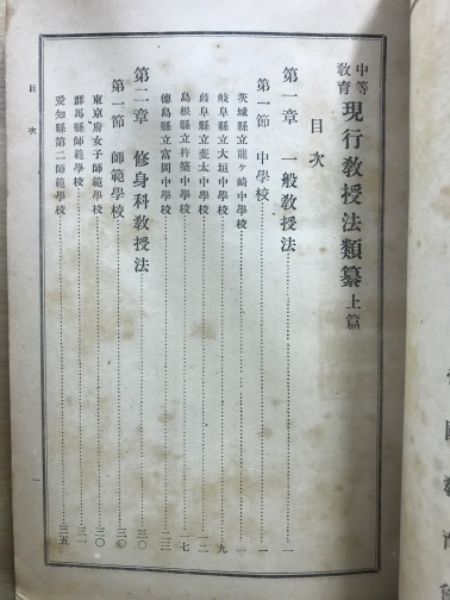 中等教育 現行教授法類纂 上篇
目次
第一章 一般教授法……一
第一節 中學校……一
茨城縣立龍ヶ崎中學校……一
岐阜縣立大垣中學校……九
岐阜縣立斐太中學校……一二
島根縣立杵築中學校……一七
德島縣立富岡中學校……二三
第二章 修身科教授法……三〇
第一節 師範學校……三〇
東京府女子師範學校……三〇
群馬縣師範學校……三一
愛知縣第二師範學校……三五
目次
一